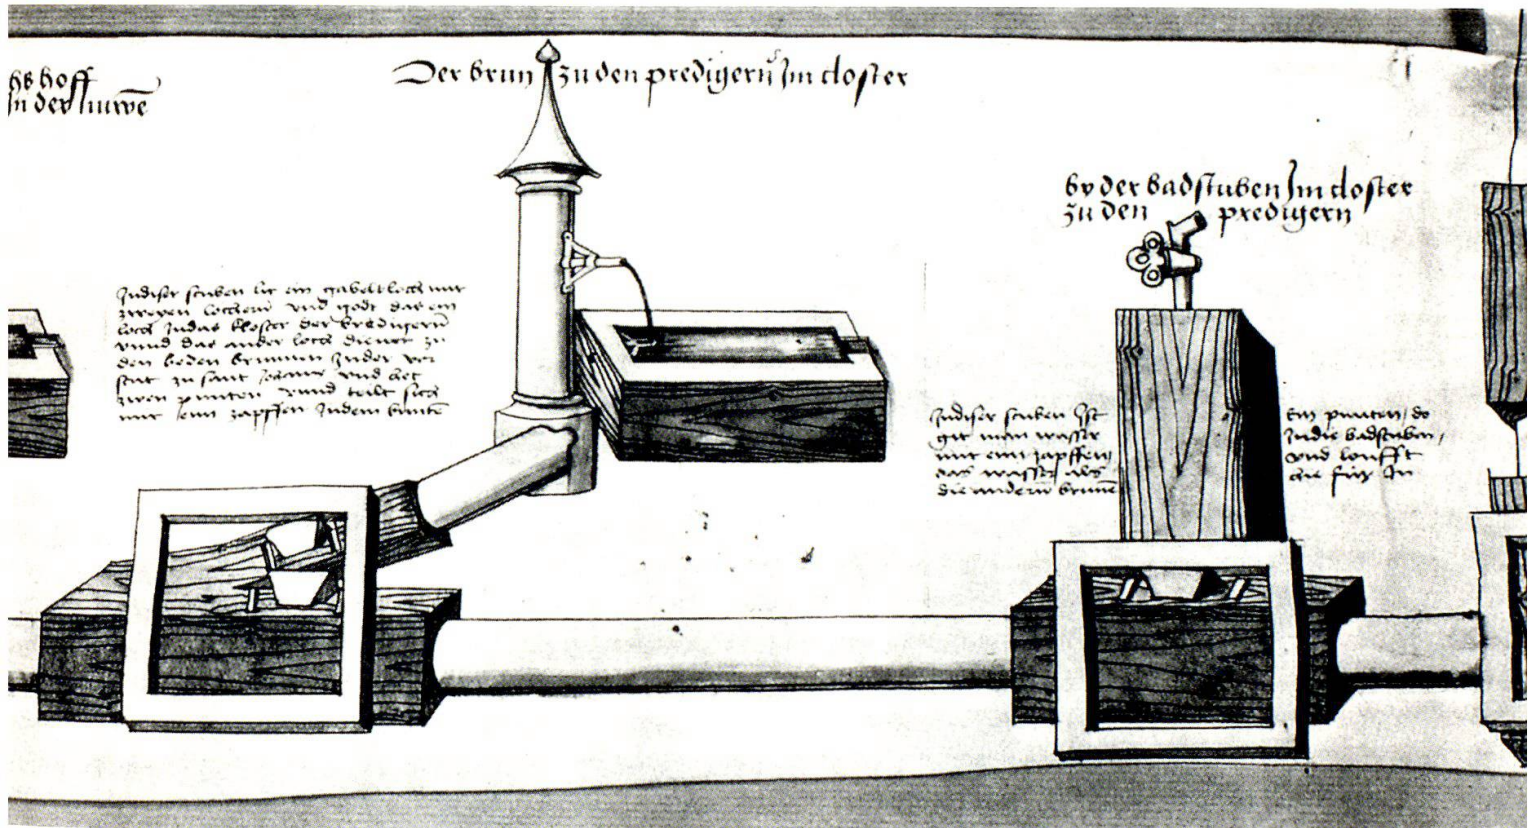 hs hoff
In der nuwē
Der brun zu den predigern Im closter
by der badstuben Im closter
zu den predigern
In diser stuben lit ein gabelt loch mit
zweyen lochern vnd godt das ein
loch In das kloster der bredigern
vnnd das ander loch dienet zu
den beden brunnen In der vor
stat zu sant Johans vnd het
zwen punten vnnd teilt sich
mit eim zapffen In dem
In diser stuben Ist
git man wasser
mit eim zapffen
das wasser als
die andern brunnē
Ein punten / do
In die badstuben /
vnd loufft
die für In